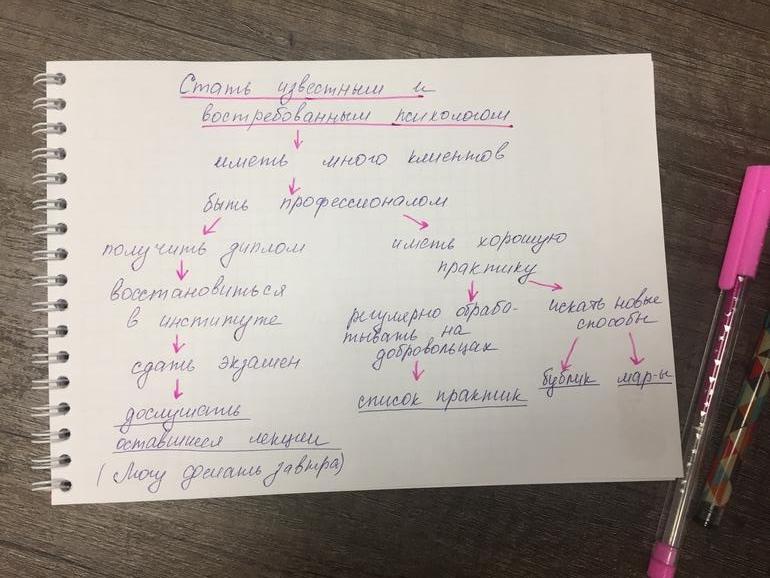 Стать известным и
востребованным психологом
иметь много клиентов
быть профессионалом
получить диплом
восстановиться
в институте
сдать экзамен
дослушать
оставшиеся лекции
(могу делать завтра)
иметь хорошую
практику
регулярно обрабо-
тывать на
добровольцах
список практик
искать новые
способы
бублик мар-ы